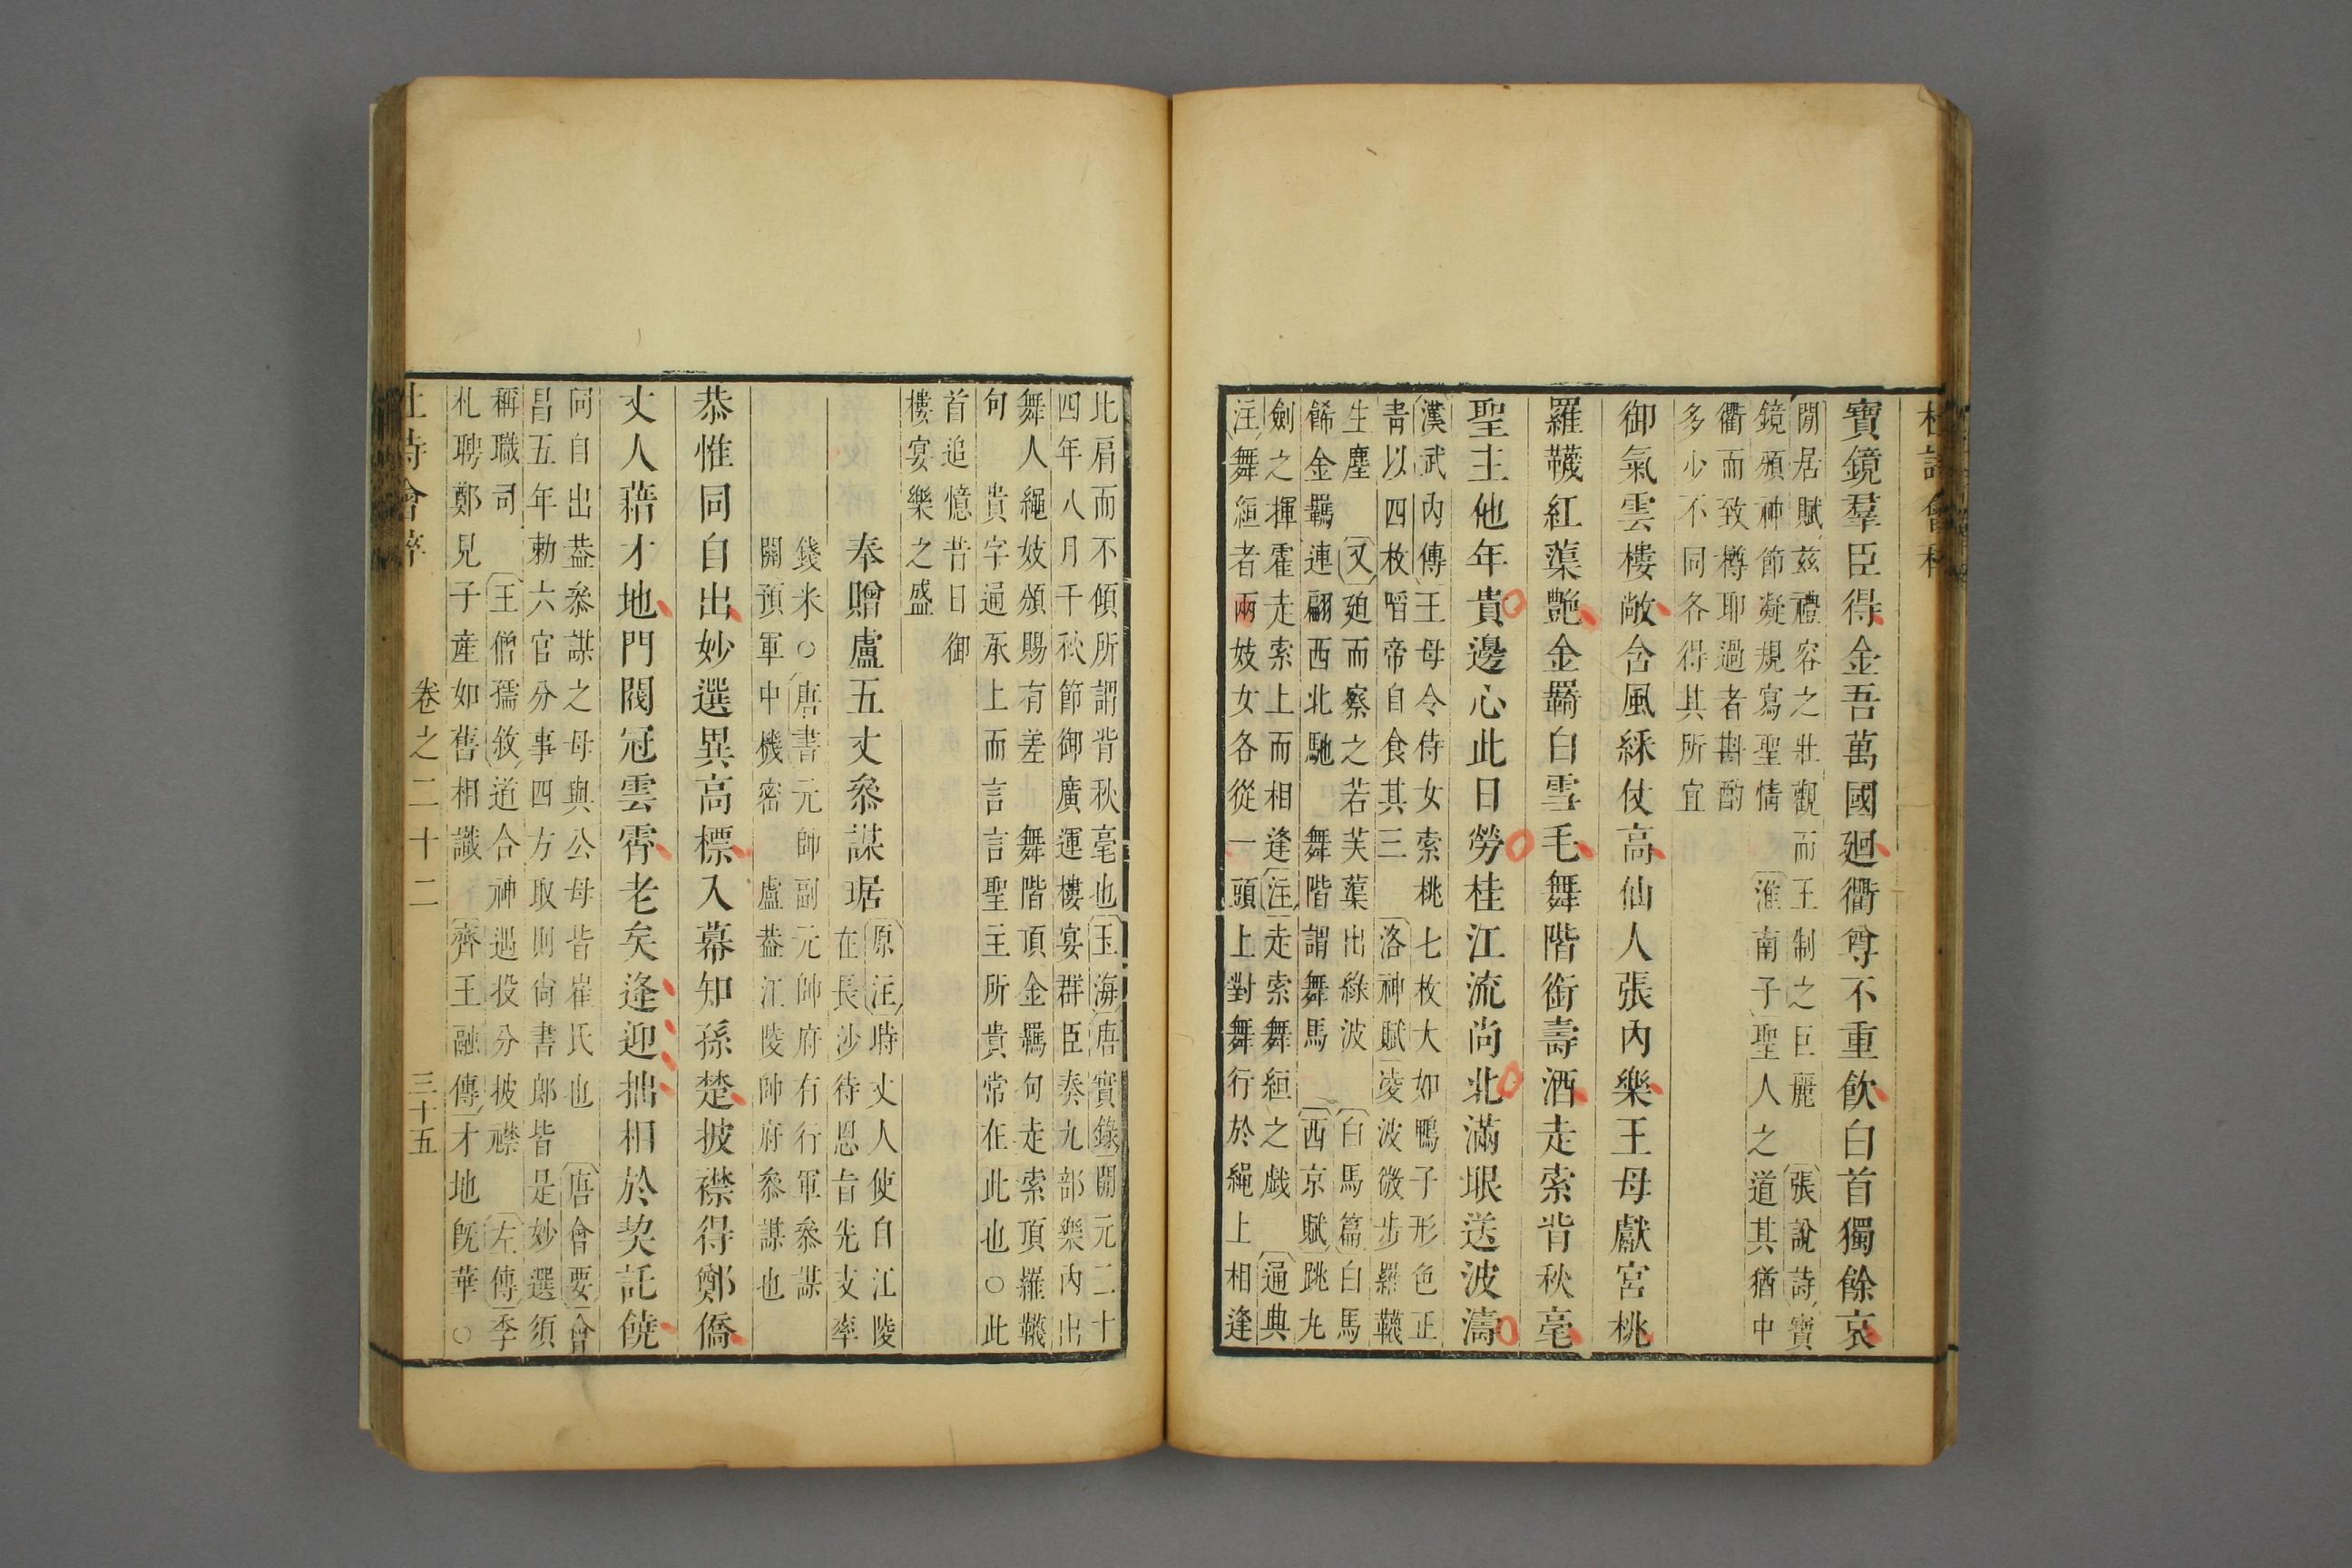 杜詩會稡
寶鏡羣臣得金吾萬國廻衢尊不重飲白首獨餘哀
閒居賦茲禮容之壯觀而王制之巨麗 張說詩寶
鏡頒神節凝規寫聖情 淮南子聖人之道其猶中
衢而致樽耶過者斟酌
多少不同各得其所宜
御氣雲樓敞含風綵仗高仙人張內樂王母獻宮桃
羅韈紅蕖艷金羈白雪毛舞階銜壽酒走索背秋毫
聖主他年貴邊心此日勞桂江流尚北滿眼送波濤
漢武內傳王母令侍女索桃七枚大如鴨子形色正
青以四枚啗帝自食其三 洛神賦凌波微步羅韈
生塵 又廹而察之若芙蕖出綠波 白馬篇白馬
餙金羈連翩西北馳 舞階謂舞馬 西京賦跳九
劍之揮霍走索上而相逢注走索舞絙之戲 通典
注舞絙者兩妓女各從一頭上對舞行於繩上相逢
比肩而不傾所謂背秋毫也玉海唐實錄開元二十
四年八月千秋節御廣運樓宴群臣奏九部樂內出
舞人繩妓頒賜有差 舞階頂金羈句走索頂羅韈
句 貴字通承上而言言聖主所貴常在此也○此
首追憶昔日御
樓宴樂之盛
奉贈盧五丈叅謀琚
原注時丈人使自江陵
在長沙待恩旨先支率
錢米○唐書元帥副元帥府有行軍叅謀
關預軍中機密 盧葢江陵帥府叅謀也
恭惟同自出妙選異高標入幕知孫楚披襟得鄭僑
丈人藉才地門閥冠雲霄老矣逢迎拙相於契託饒
同自出葢叅謀之母與公母皆崔氏也 唐會要會
昌五年勅六官分事四方取則尙書郎皆是妙選須
稱職司 王僧孺敘道合神遇投分披襟 左傳季
札聘鄭見子産如舊相識 齊王融傳才地旣華○
杜詩會稡 卷之二十二 三十五